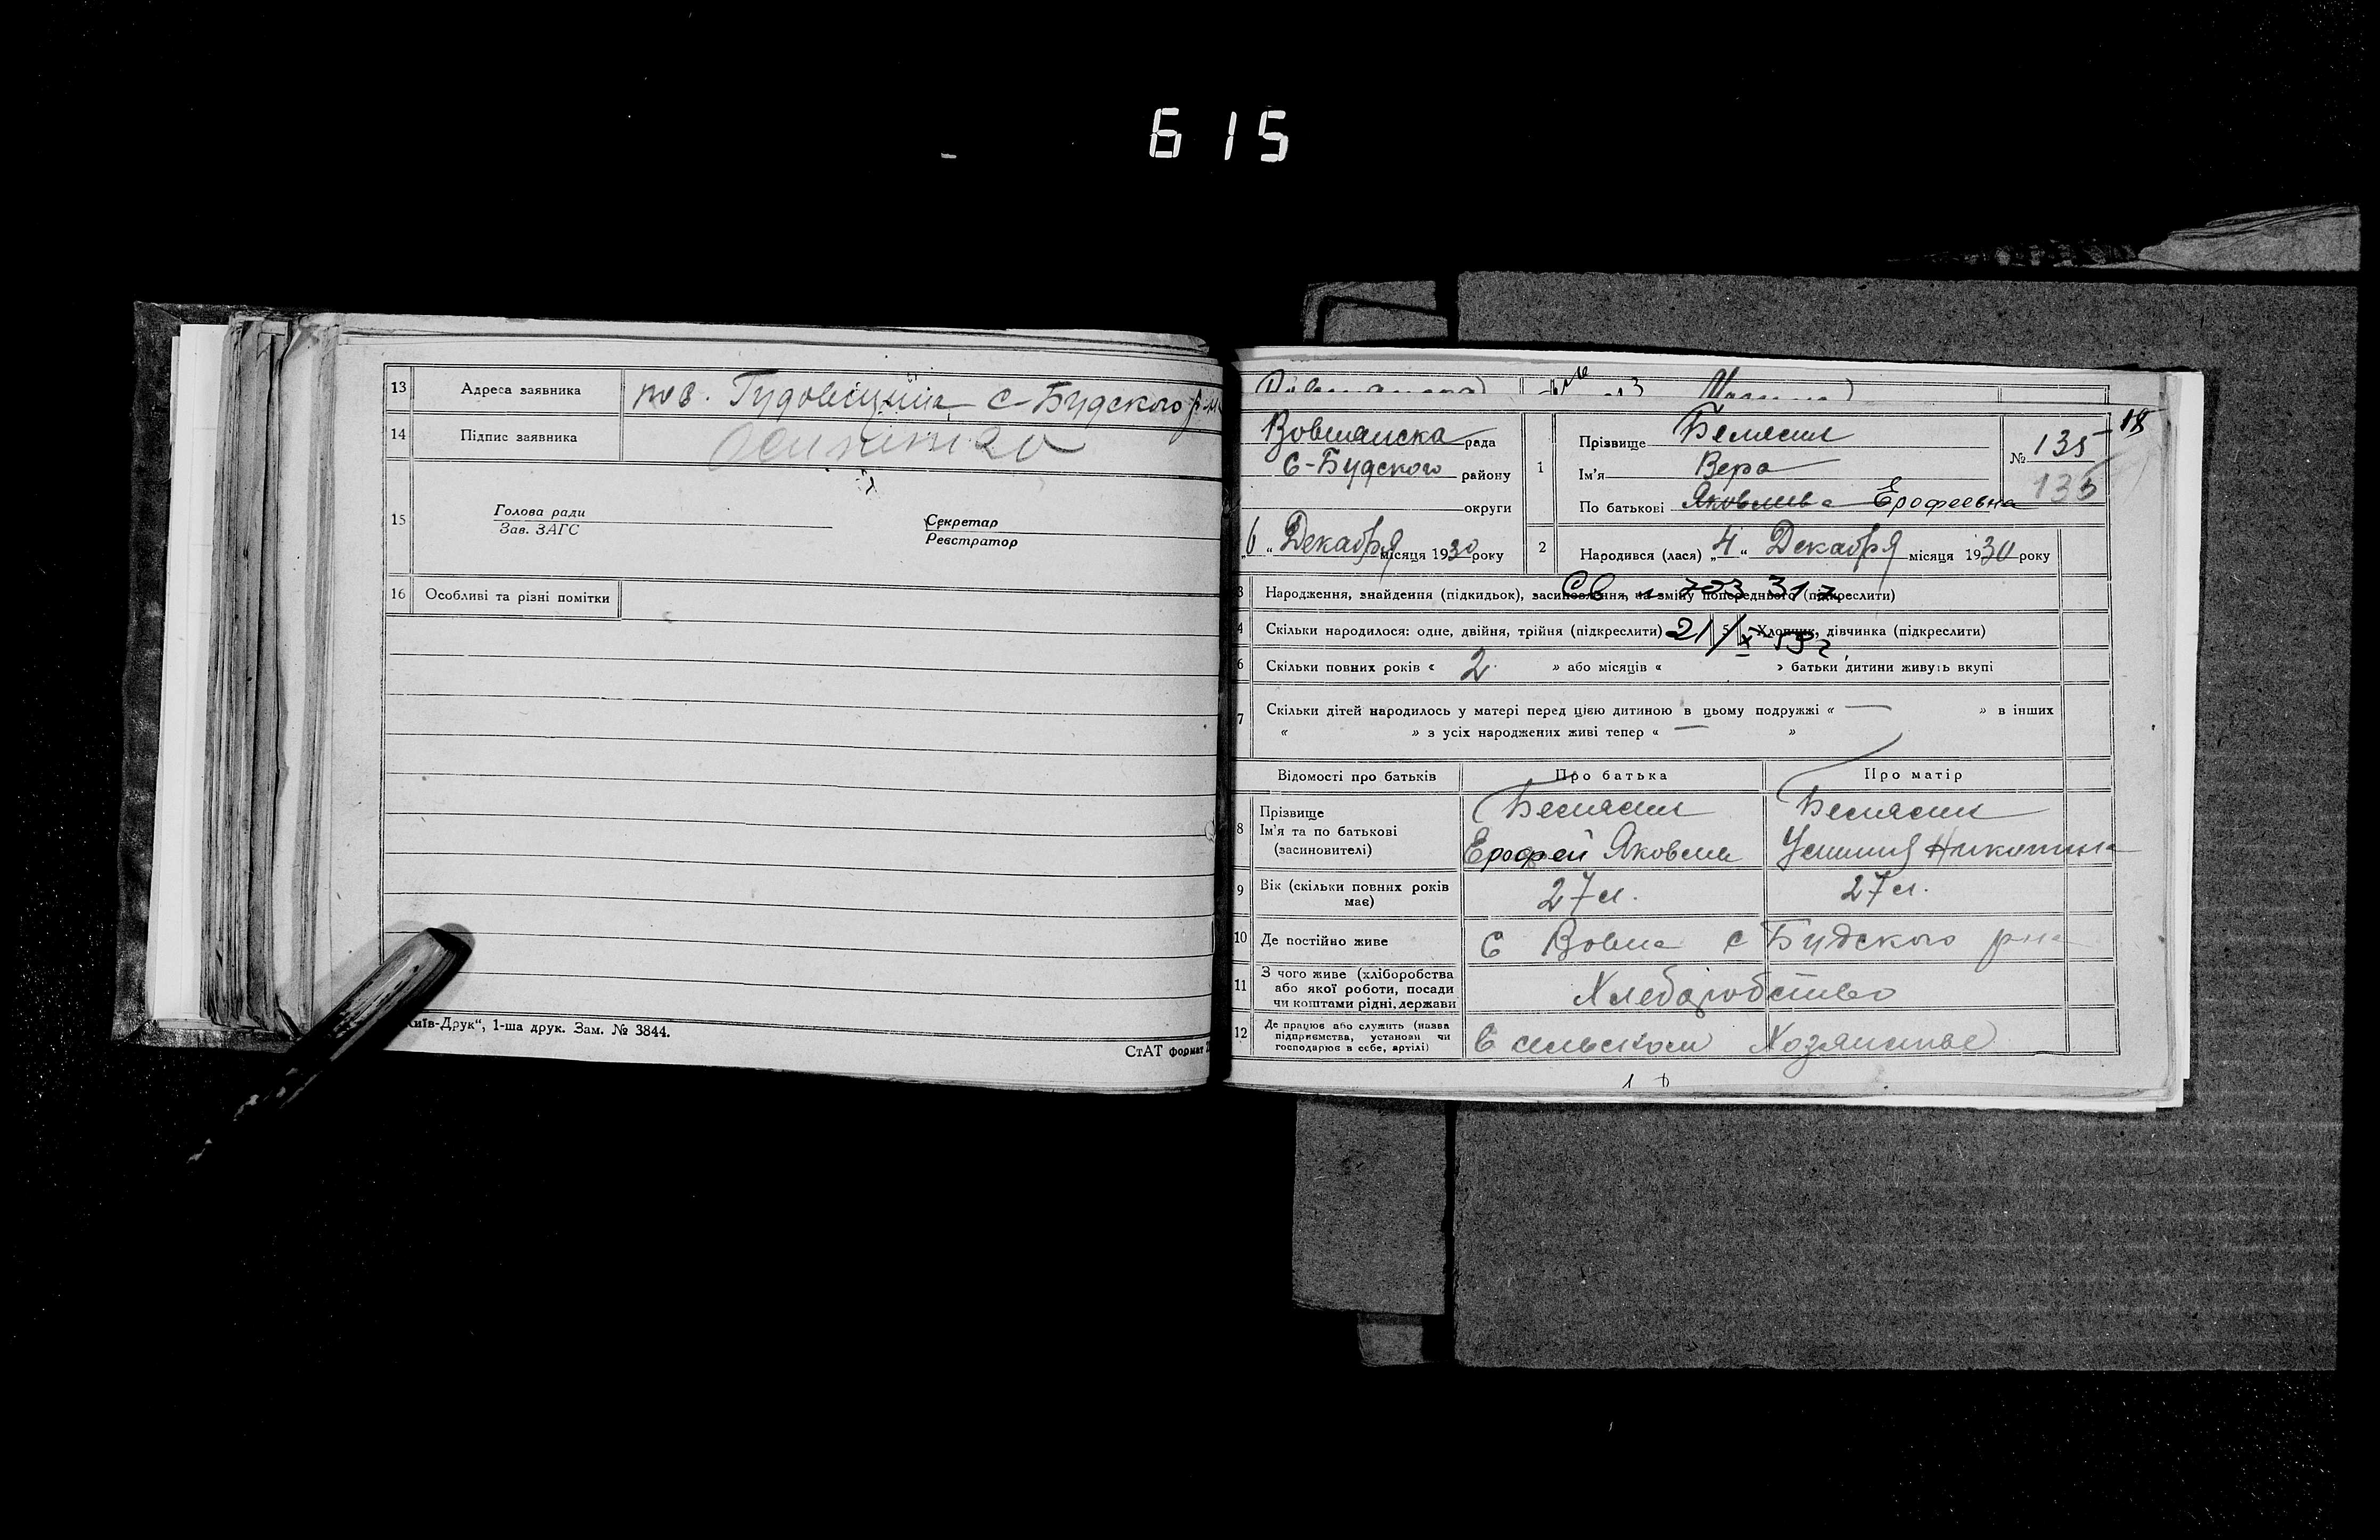 615
13 Адреса заявника
с-Будского
14 Підпис заявника
15 Голова ради
Зав. ЗАГС
Секретар
Реєстратор
16 Особливі та різні помітки
Київ-Друк“, 1-ша друк. Зам. № 3844.
СтАТ формат
18
рада
С-Будского району
округи
„6“ Декабря місяця 1930 року
1 Прізвище
Ім'я Вера
По батькові Яковлева Ерофеевна
№ 135
135
2 Народився (лася) „4“ Декабря місяця 1930 року
3 Народження, знайдення (підкидьок), засиновлення, на зміну попереднього (підкреслити)
4 Скільки народилося: одне, двійня, трійня (підкреслити) 5 Хлопчик, дівчинка (підкреслити)
6 Скільки повних років « 2 » або місяців « » батьки дитини живуть вкупі
7 Скільки дітей народилось у матері перед цією дитиною в цьому подружжі « — » в інших
« » з усіх народжених живі тепер « — »
Відомості про батьків Про батька Про матір
8 Прізвище
Ім'я та по батькові
(засиновителі)
Ерофей
9 Вік (скільки повних років
має)
27 л. 27 л.
10 Де постійно живе
с Будского
11 З чого живе (хліборобства
або якої роботи, посади
чи коштами рідні, держави
Хлеборобство
12 Де працює або служить (назва
підприємства, установи чи
господарює в себе, артілі)
В сельском Хозяистве